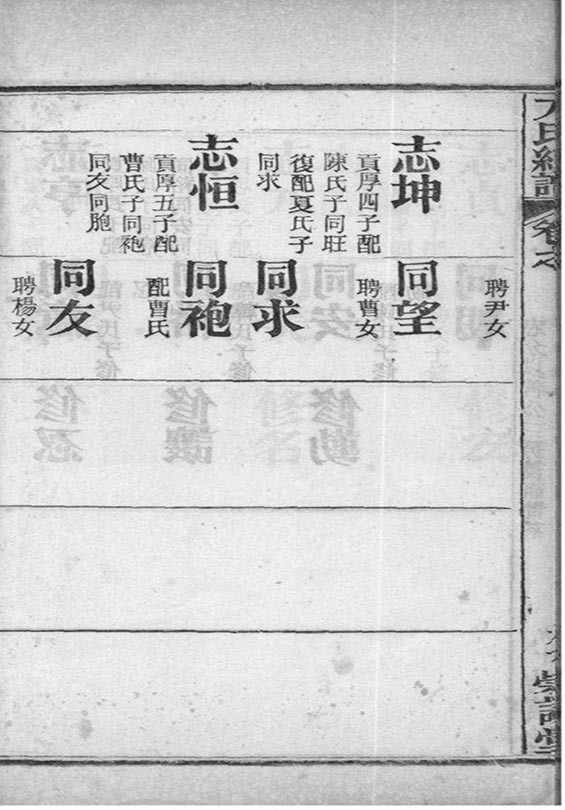 氏總譜
卷之
志坤
貢厚四子配
陳氏子同旺
復配夏氏子
同求
志恒
貢厚五子配
曹氏子同袍
同友同胞
聘尹女
同望
聘曹女
同求
同袍
配曹氏
同友
聘楊女